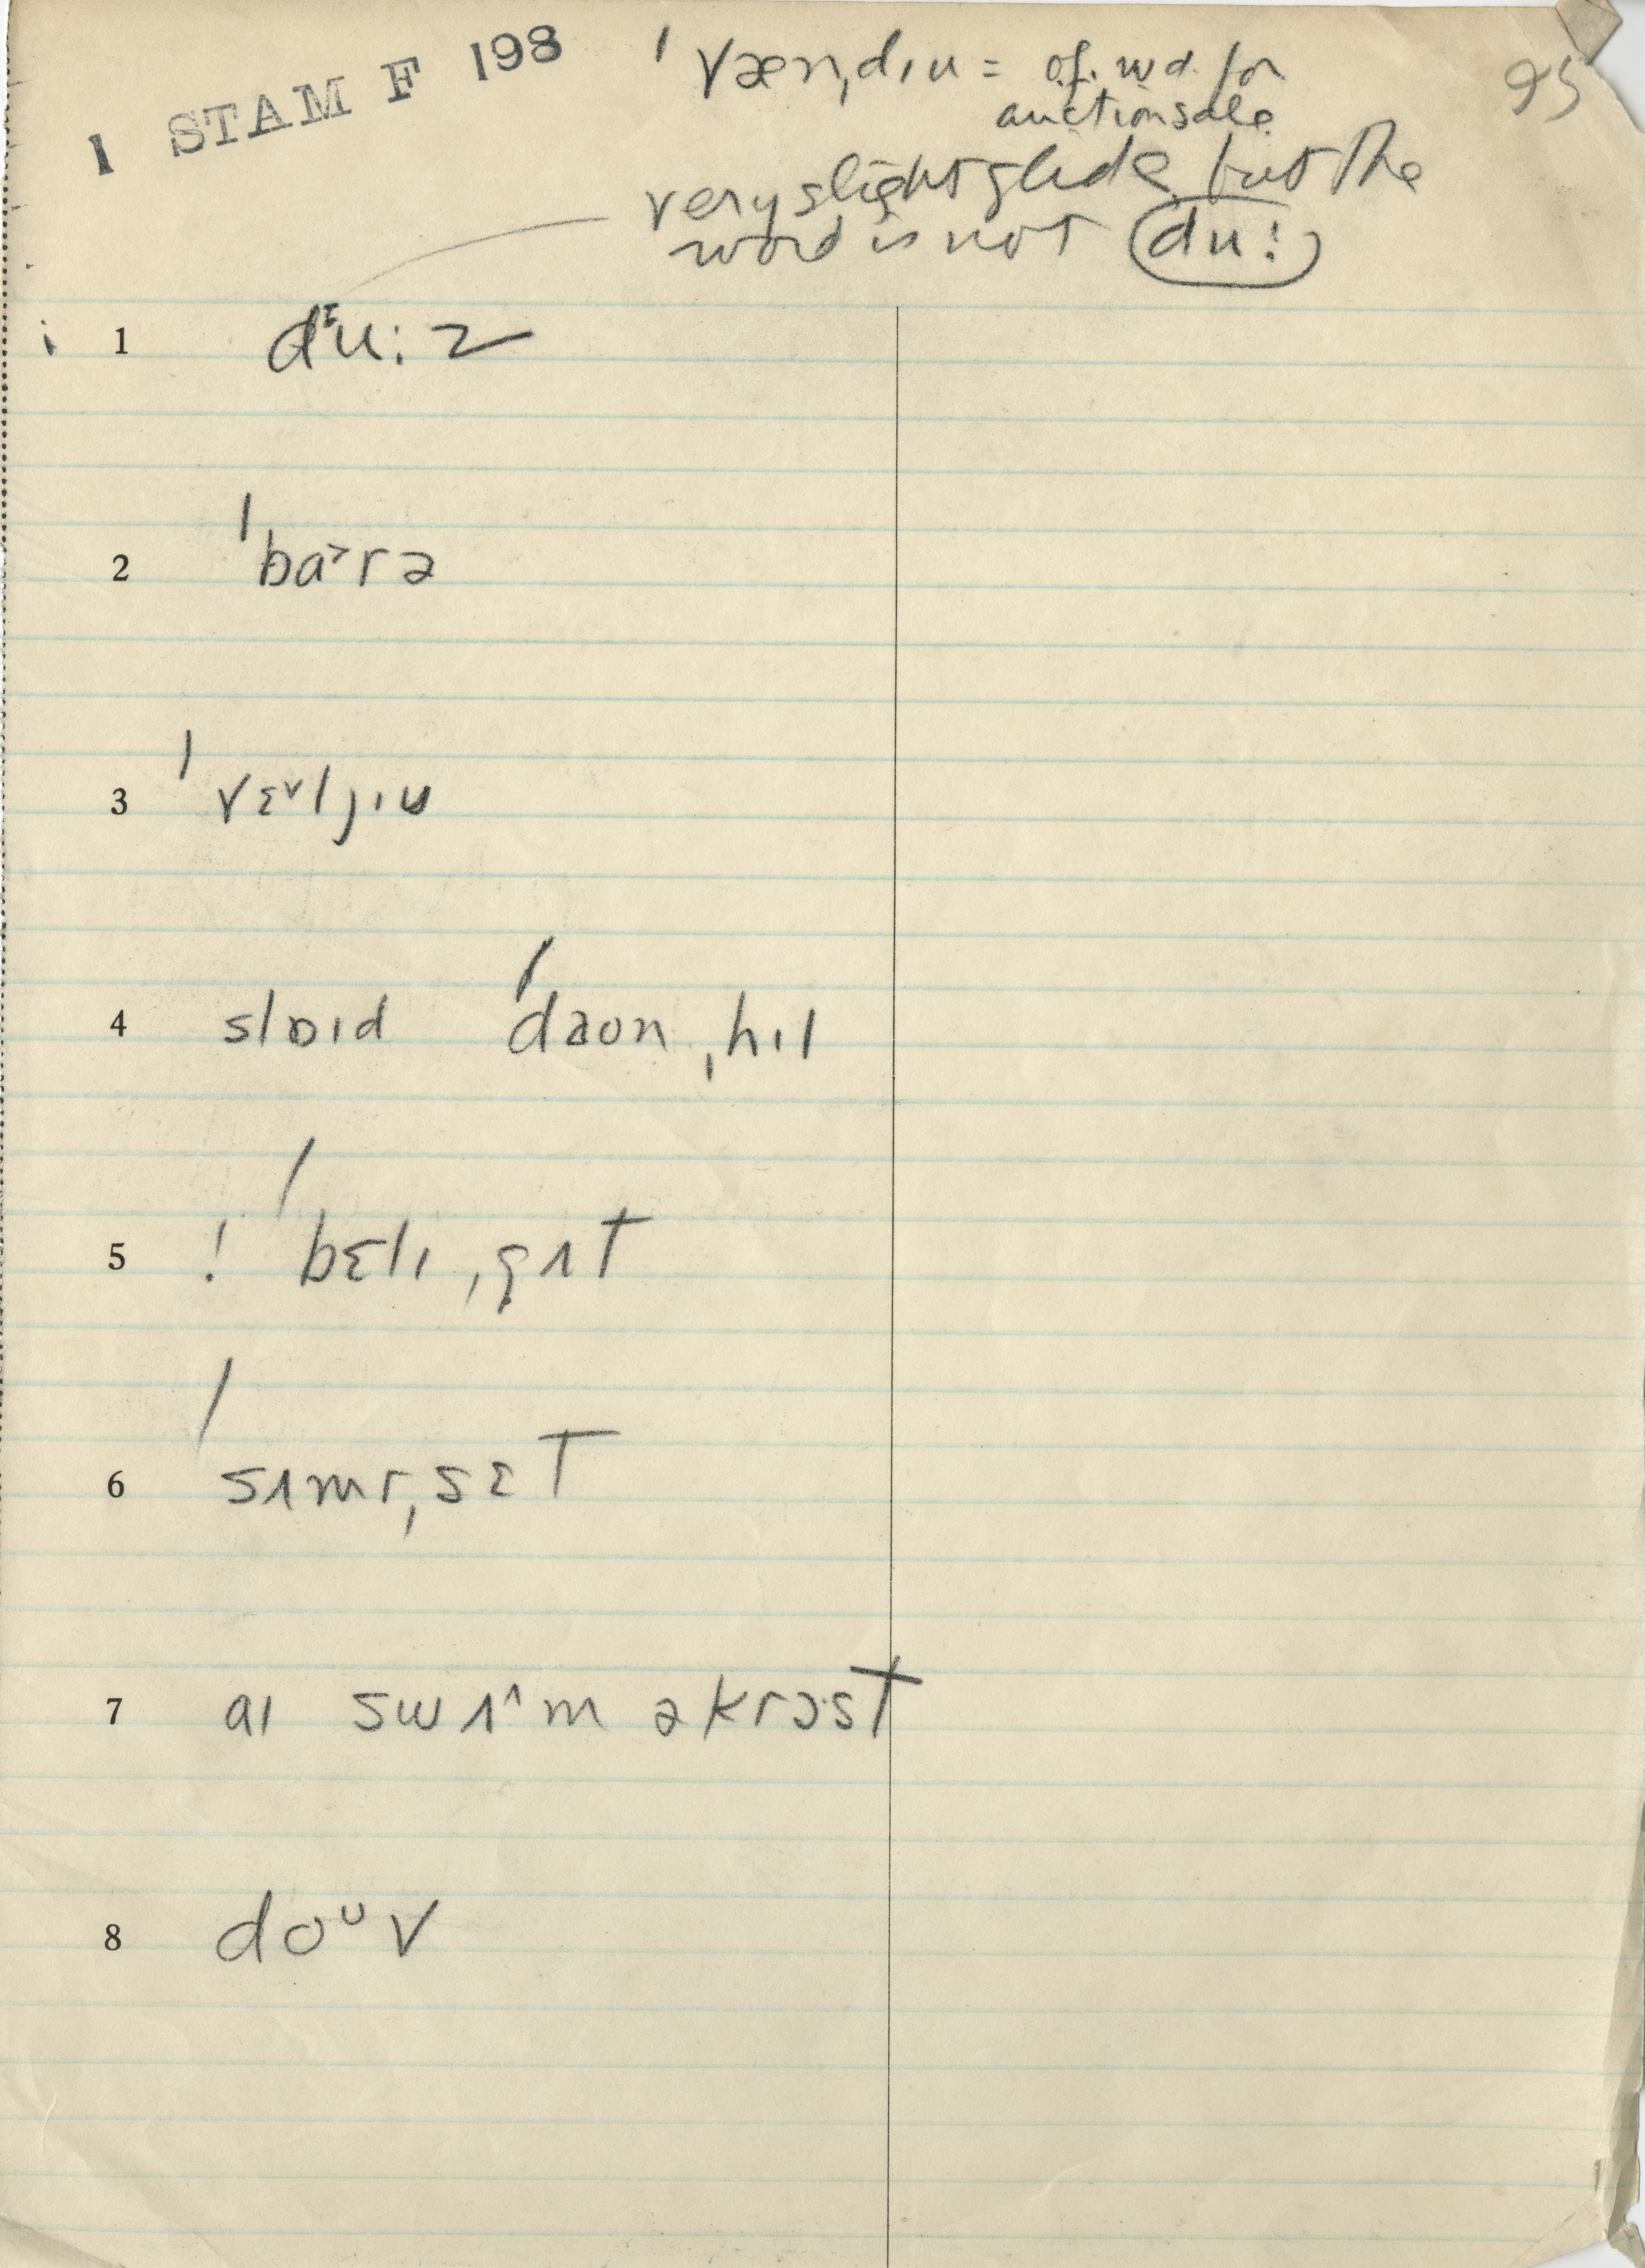 1 STAM F 198
95
ˈvænˌdɪu = o.f. wd. for
auction sale
very slight glide but the
word is not du:
1 dᶦu:z
2 ˈba˃rə
3 ˈvɛ˅ljɪu
4 slɒɪd ˈdaonˌhɪl
5 ! ˈbɛlɪˌgʌt
6 ˈsʌmrˌsɛT
7 aɪ swʌ˄m əkrɔst
8 doᶸv